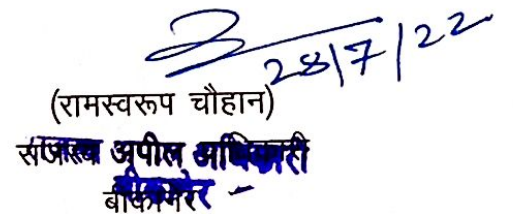 28/7/22
(रामस्वरूप चौहान)
राजस्व अपील अधिकारी
बीकानेर